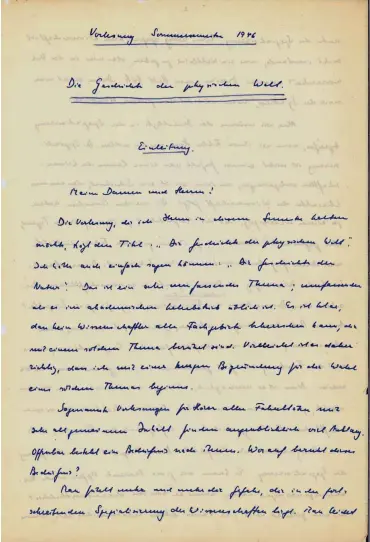 Vorlesung Sommersemester 1946
Die Geschichte der physischen Welt.
Einleitung.
Meine Damen und Herren!
Die Vorlesung, die ich Ihnen in diesem Semester halten
möchte, trägt den Titel: „Die Geschichte der physischen Welt".
Ich hätte auch einfach sagen können: „Die Geschichte der
Natur". Das ist ein sehr umfassendes Thema; umfassender
als es im akademischen Lehrbetrieb üblich ist. Es ist klar,
dass kein Wissenschaftler alle Fachgebiete beherrschen kann, die
mit einem solchen Thema berührt sind. Vielleicht ist es daher
richtig, dass ich mit einer kurzen Begründung für die Wahl
eines solchen Themas beginne.
Sogenannte Vorlesungen für Hörer aller Fakultäten mit
sehr allgemeinem Inhalt finden augenblicklich viel Anklang.
Offenbar besteht ein Bedürfnis nach ihnen. Worauf beruht dieses
Bedürfnis?
Man fühlt mehr und mehr die Gefahr, die in der fort-
schreitenden Spezialisierung der Wissenschaften liegt. Man leidet